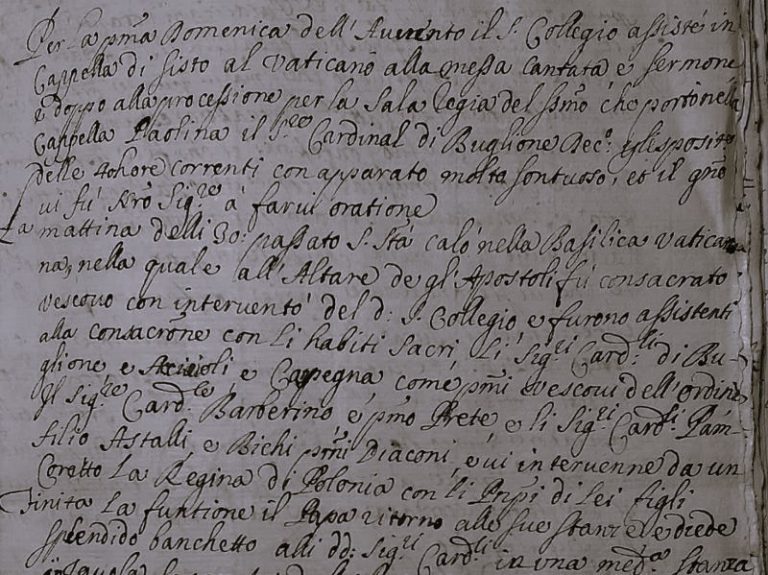 Per la pma Domenica dell' Auuento il S. Collegio assistè in
Cappella di Sisto al Vaticano alla messa cantata e sermone
e doppo alla processione per la Sala Regia del Ssmo che portò nella
Cappella Paolina il Sre Cardinal di Buglione
delle 40 hore correnti con apparato molto sontuoso, et il gno
ui fù Nro Sigre a farui oratione
La mattina delli 30: passato S. Stà calò nella Basilica Vatica
na, nella quale all' Altare de gl' Apostoli fù consacrato
Vescouo con interuento del d: S. Collegio e furono assistenti
alla consacrone con li habiti sacri li Sigri Cardli di Bu-
glione e Acciaioli e Carpegna come pmi Vescoui dell' ordine
Il Sigre Cardle Barberino, e pmo Prete e li Sigri Cardli Pam-
filio Astalli, e Bichi pmi Diaconi, e ui interuenne da un
Coretto La Regina di Polonia con li Pnpi di lei figli
Finita La funtione il Papa ritornò alle sue stanze e diede
splendido banchetto alli dd: Sigri Cardli in una meda stanza